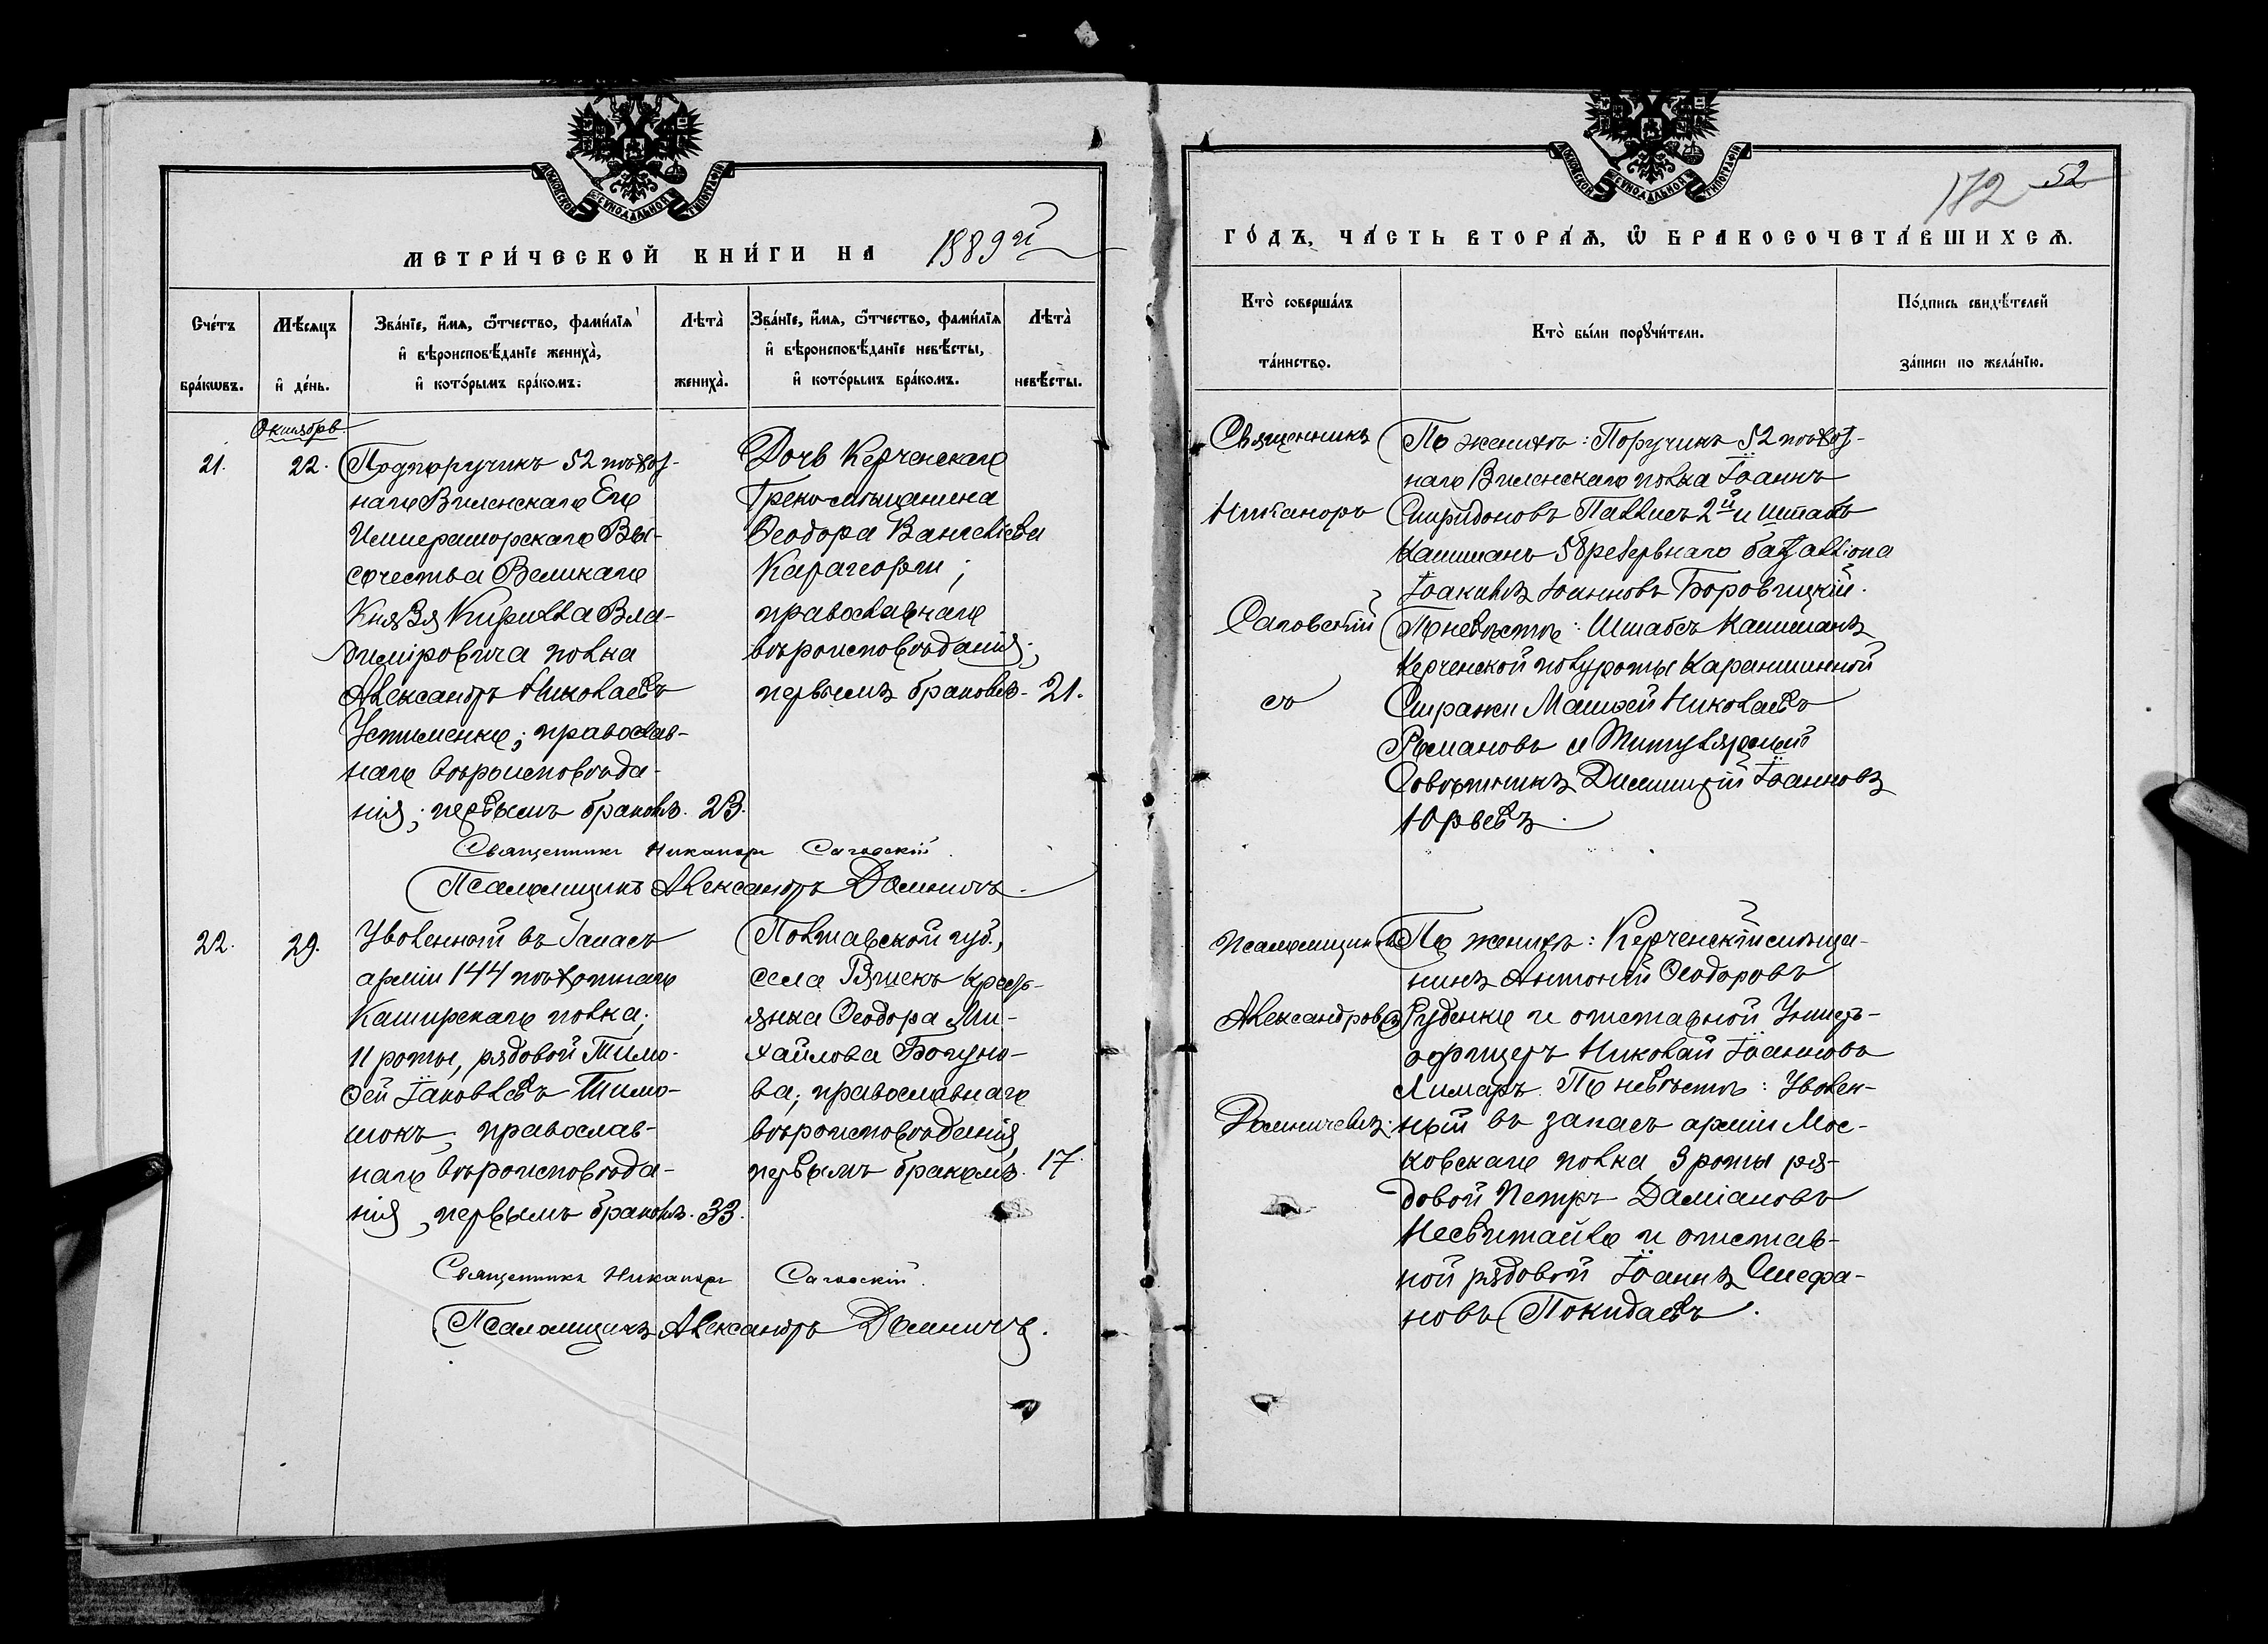 МОСКОВСКОЙ СѴНОДАЛЬНОЙ ТИПОГРАФІИ
МЕТРИ́ЧЕСКОЙ КНИ́ГИ НА 1889й
Сче́тъ бра́кωвъ.
Мѣ́сяцъ и҆ де́нь.
Зва́нїе, и҆́мѧ, ѻ҆́тчество, фами́лїѧ
и҆ вѣроисповѣ́данїе жениха̀,
и҆ кото́рымъ бра́комъ.
Лѣта̀ жениха̀.
Зва́нїе, и҆́мѧ, ѻ҆́тчество, фами́лїѧ
и҆ вѣроисповѣ́данїе невѣ́сты,
и҆ кото́рымъ бра́комъ.
Лѣта̀ невѣ́сты.
Октябрь
21.
22.
Подпоручикъ 52 пѣхот-
наго Виленскаго Его
Императорскаго Вы-
сочества Великаго
Князя Кирилла Вла-
диміровича полка
Александръ Николаевъ
Устименко; православ-
наго вѣроисповѣда-
нія; первымъ бракомъ. 23.
Дочь Керченскаго
Греко-мѣщанина
Ѳеодора Вангеліева
Карагеоргіи;
православнаго
вѣроисповѣданія;
первымъ бракомъ- 21.
Священникъ Никаноръ Саговскій.
Псаломщикъ Александръ Домничъ.
22.
29.
Уволенный въ Запасъ
арміи 144 пѣхотнаго
Каширскаго полка;
11 роты, рядовой Тимо-
ѳей Іаковлевъ Тимо-
шокъ; православ-
наго вѣроисповѣда-
нія, первымъ бракомъ. 33.
Полтавской губ.,
села Вяшекъ кресть-
янка Ѳеодора Ми-
хайлова Богуно-
ва; православнаго
вѣроисповѣданія,
первымъ бракомъ. 17.
Священникъ Никаноръ Саговскій.
Псаломщикъ Александръ Домничъ.
МОСКОВСКОЙ СѴНОДАЛЬНОЙ ТИПОГРАФІИ
172 52
ГО́ДЪ, ЧА́СТЬ ВТОРА́Ѧ, Ѽ БРАКОСОЧЕТА́ВШИХСѦ.
Кто̀ соверша́лъ
та́инство.
Кто̀ бы́ли порꙋчи́тели.
По́дпись свидѣ́телей
за́писи по жела́нїю.
Священникъ
Никаноръ
Саговскій
съ
По женихѣ: Поручикъ 52 пѣхот-
наго Виленскаго полка Іоаннъ
Спиридоновъ Паллисъ 2й и Штабъ
Капитанъ 58 резервнаго баталліона
Іоакимъ Іоанновъ Боровицкій.
По невѣстѣ: Штабсъ Капитанъ
Керченской полуроты Карантинной
Стражи Матѳей Николаевъ
Романовъ и Титулярный
Совѣтникъ Димитрій Іоанновъ
Юрьевъ.
Псаломщикомъ
Александромъ
Домничемъ.
По женихѣ: Керченскій мѣща-
нинъ Антоній Ѳеодоровъ
Руденко и отставной Унтеръ-
офицеръ Николай Іоанновъ
Лимаръ. По невѣстѣ: Уволен-
ный въ запасъ арміи Мос-
ковскаго полка, 3 роты ря-
довой Петръ Даміановъ
Несвитайло и отстав-
ной рядовой Іоаннъ Стефа-
новъ Покидаевъ.